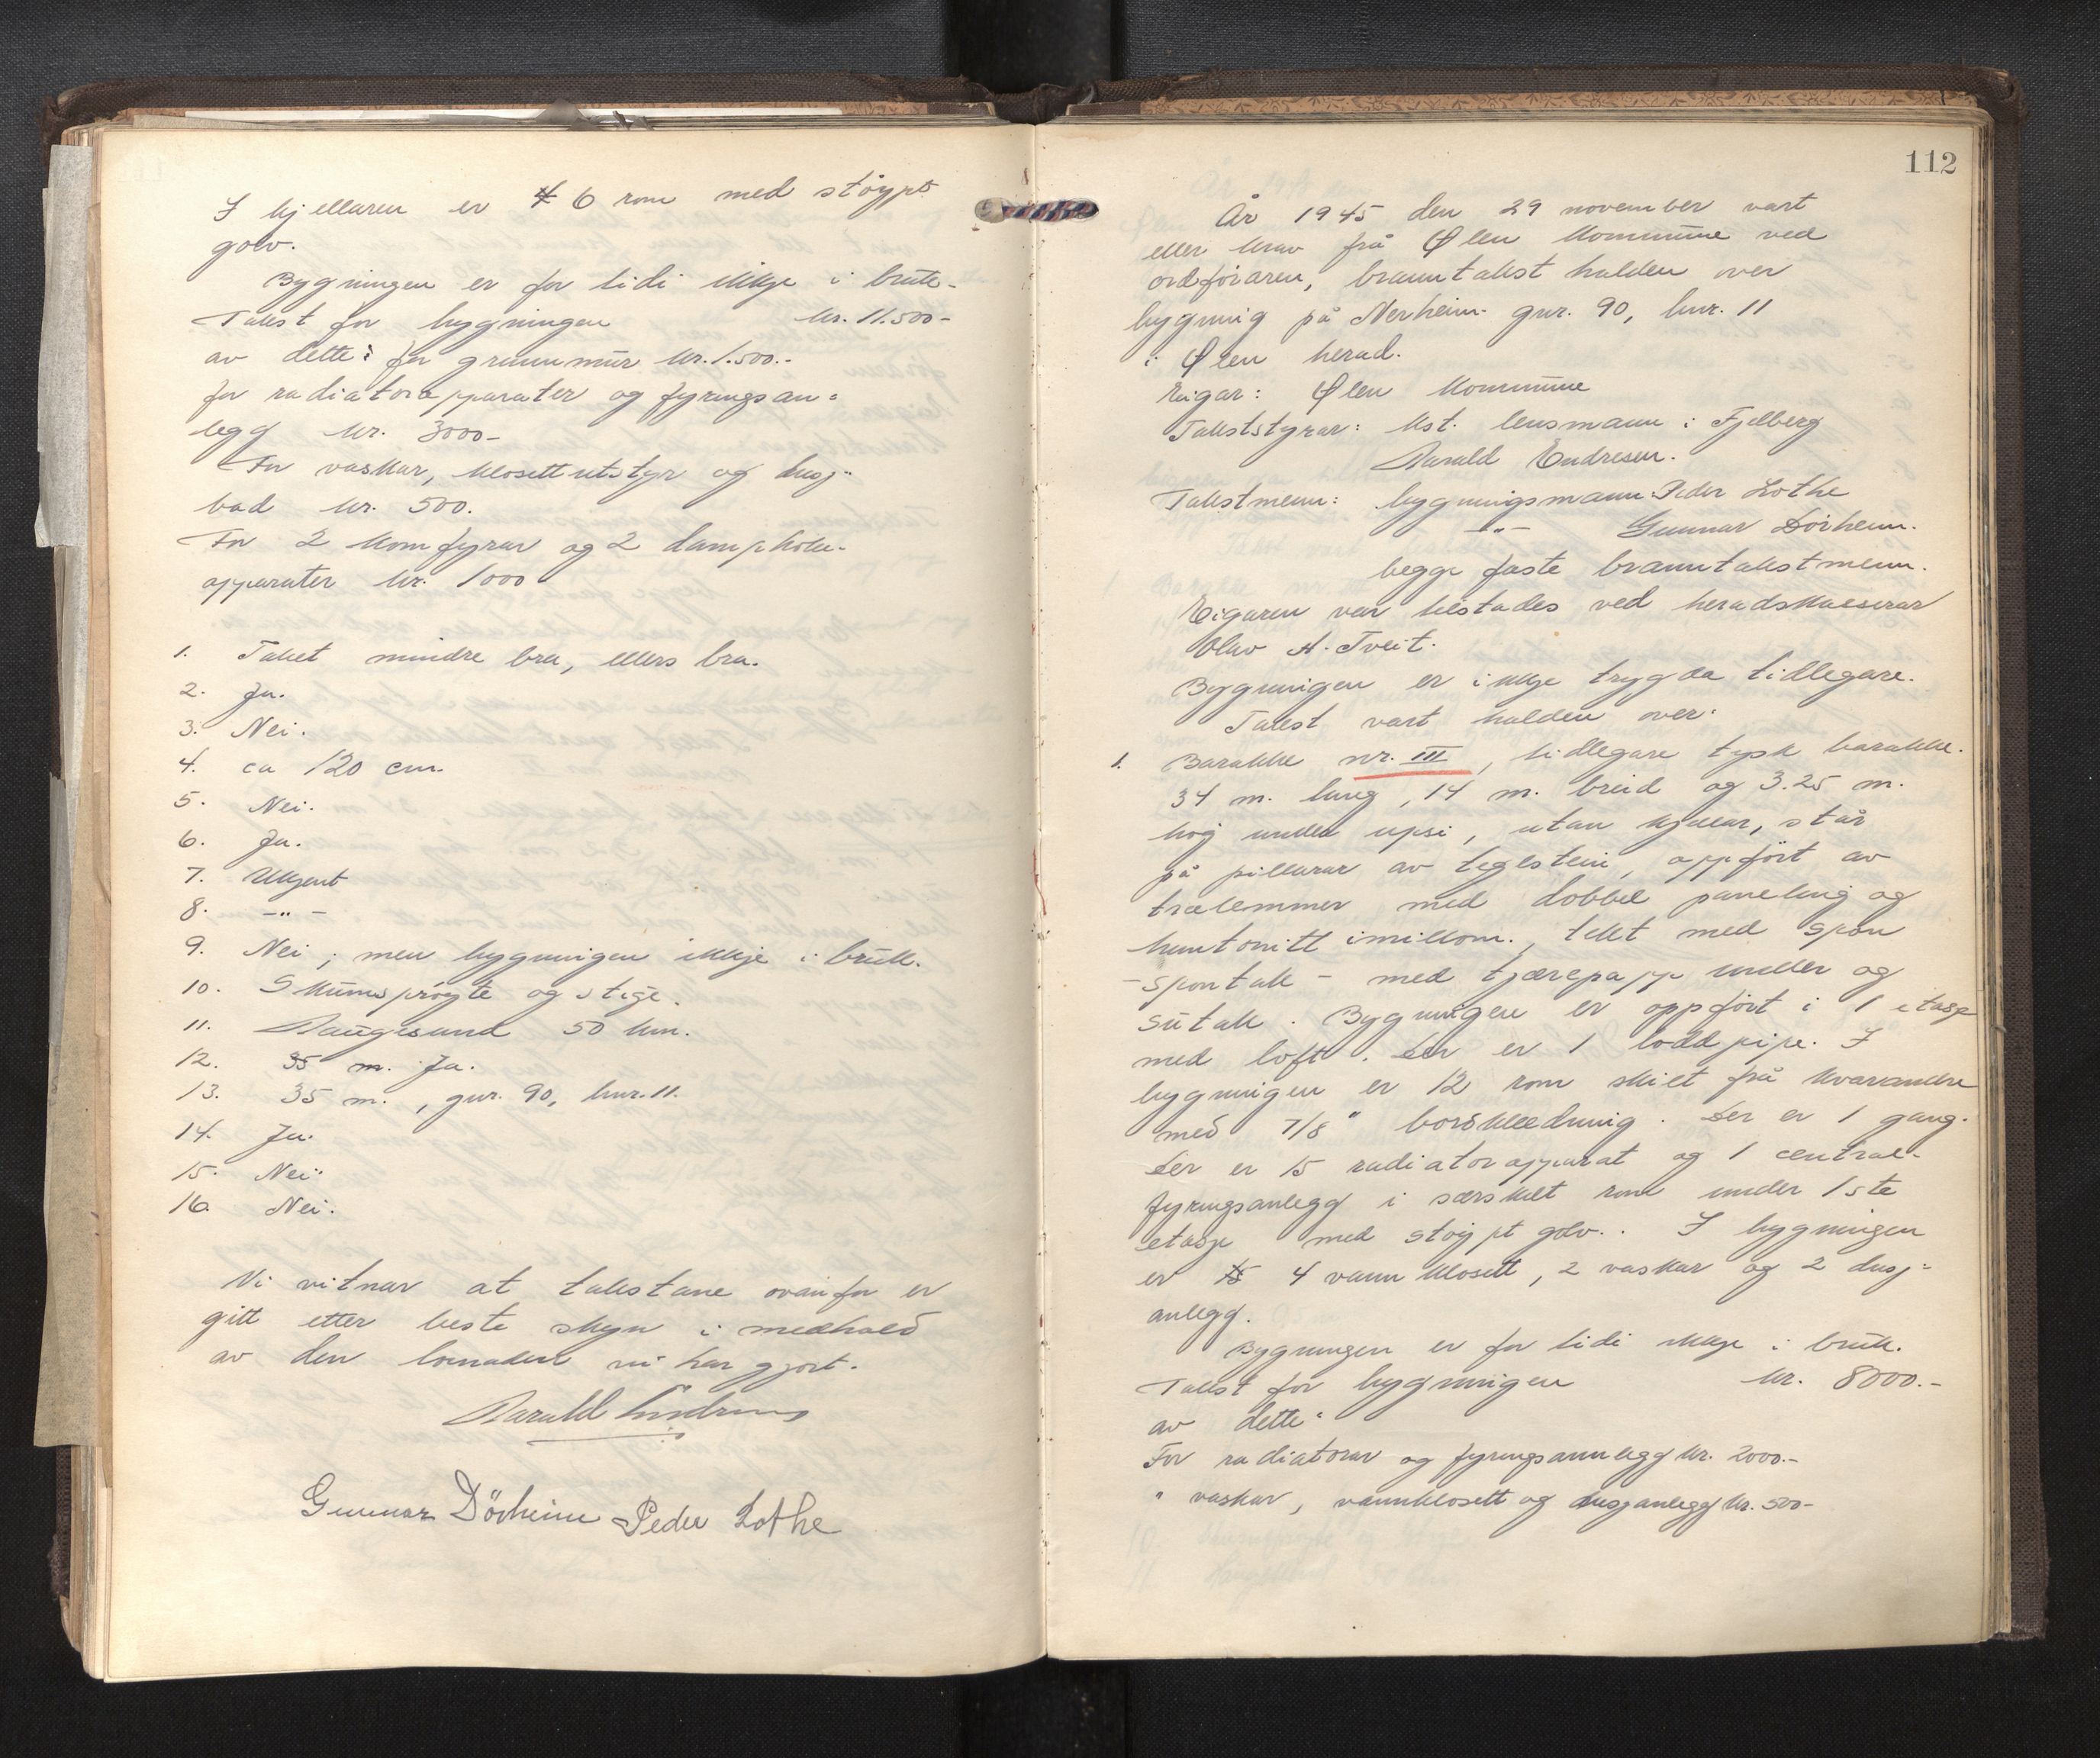 I kjellaren er 6 rom med støypt
golv.
Bygningen er for tidi ikkje i bruk.
Takst for bygningen kr. 11.500-
av dette: for grunnmur kr. 1.500.-
for radiatorapparater og fyringsan=
legg kr. 3000-
For vaskar, klosettutstyr og dusj-
bad kr. 500.
For 2 komfyrar og 2 dampkoke-
apparater kr. 1000
1. Taket mindre bra, ellers bra.
2. Ja.
3. Nei.
4. ca 120 cm.
5. Nei.
6. Ja.
7. Ukjent
8. -"-
9. Nei, men bygningen ikkje i bruk.
10. Skumsprøyte og stige.
11. Haugesund 50 km.
12. 35 m. Ja.
13. 35 m., gnr. 90, bnr. 11.
14. Ja.
15. Nei.
16. Nei.
Vi vitnar at takstane ovanfor er
gitt etter beste skyn i medhald
av den lovnaden vi har gjort.
Harald Endresen
Gunnar Dörheim Peder Lothe
112
År 1945 den 29 november vart
etter krav frå Ølen kommune ved
ordføraren, branntakst halden over
bygning på Nerheim gnr. 90, bnr. 11
i Ølen herad.
Eigar: Ølen kommune
Takststyrar: Kst. lensmann i Fjelberg
Harald Endresen.
Takstmenn: bygningsmann Peder Lothe
-"- Gunnar Dörheim.
begge faste branntakstmenn.
Eigaren var tilstades ved heradskasserar
Olav H. Tveit.
Bygningen er ikkje trygda tidlegare.
Takst vart halden over:
1. Barakke nr. III, tidlegare tysk barakke.
34 m. lang, 14 m. breid og 3.25 m.
høg under upsi, utan kjellar, står
på pillarar av teglstein, oppført av
trælemmer med dobbel paneling og
huntonitt imillom., tekt med spon
-spontak- med tjærepapp under og
sutak. Bygningen er oppført i 1 etasje
med loft. Der er 1 loddpipe. I
bygningen er 12 rom skilt frå kvarandre
med 7/8" bordkledning. Der er 1 gang.
Der er 15 radiatorapparat og 1 central-
fyringsanlegg i særskilt rom under 1ste
etasje med støypt golv.. I bygningen
er 4 vannklosett, 2 vaskar og 2 dusj=
anlegg.
Bygningen er for tidi ikkje i bruk.
Takst for bygningen kr. 8000.-
av dette:
For radiatorar og fyringsannlegg kr. 2000.-
" vaskar, vannklosett og dusjanlegg kr. 500-